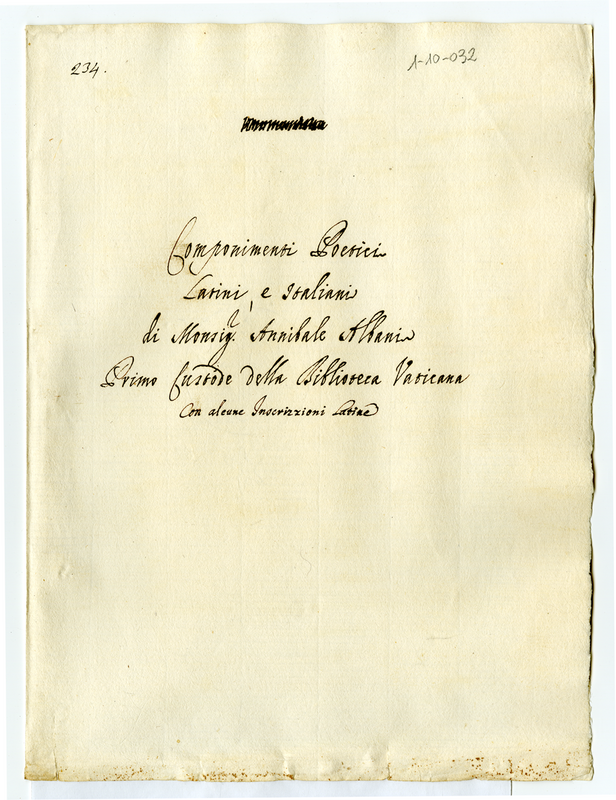 234.
1-10-032
Componimenti Poetici
Latini, e Italiani
di Monsigr. Annibale Albani
Primo Custode della Biblioteca Vaticana
Con alcune Inscrizzioni Latine